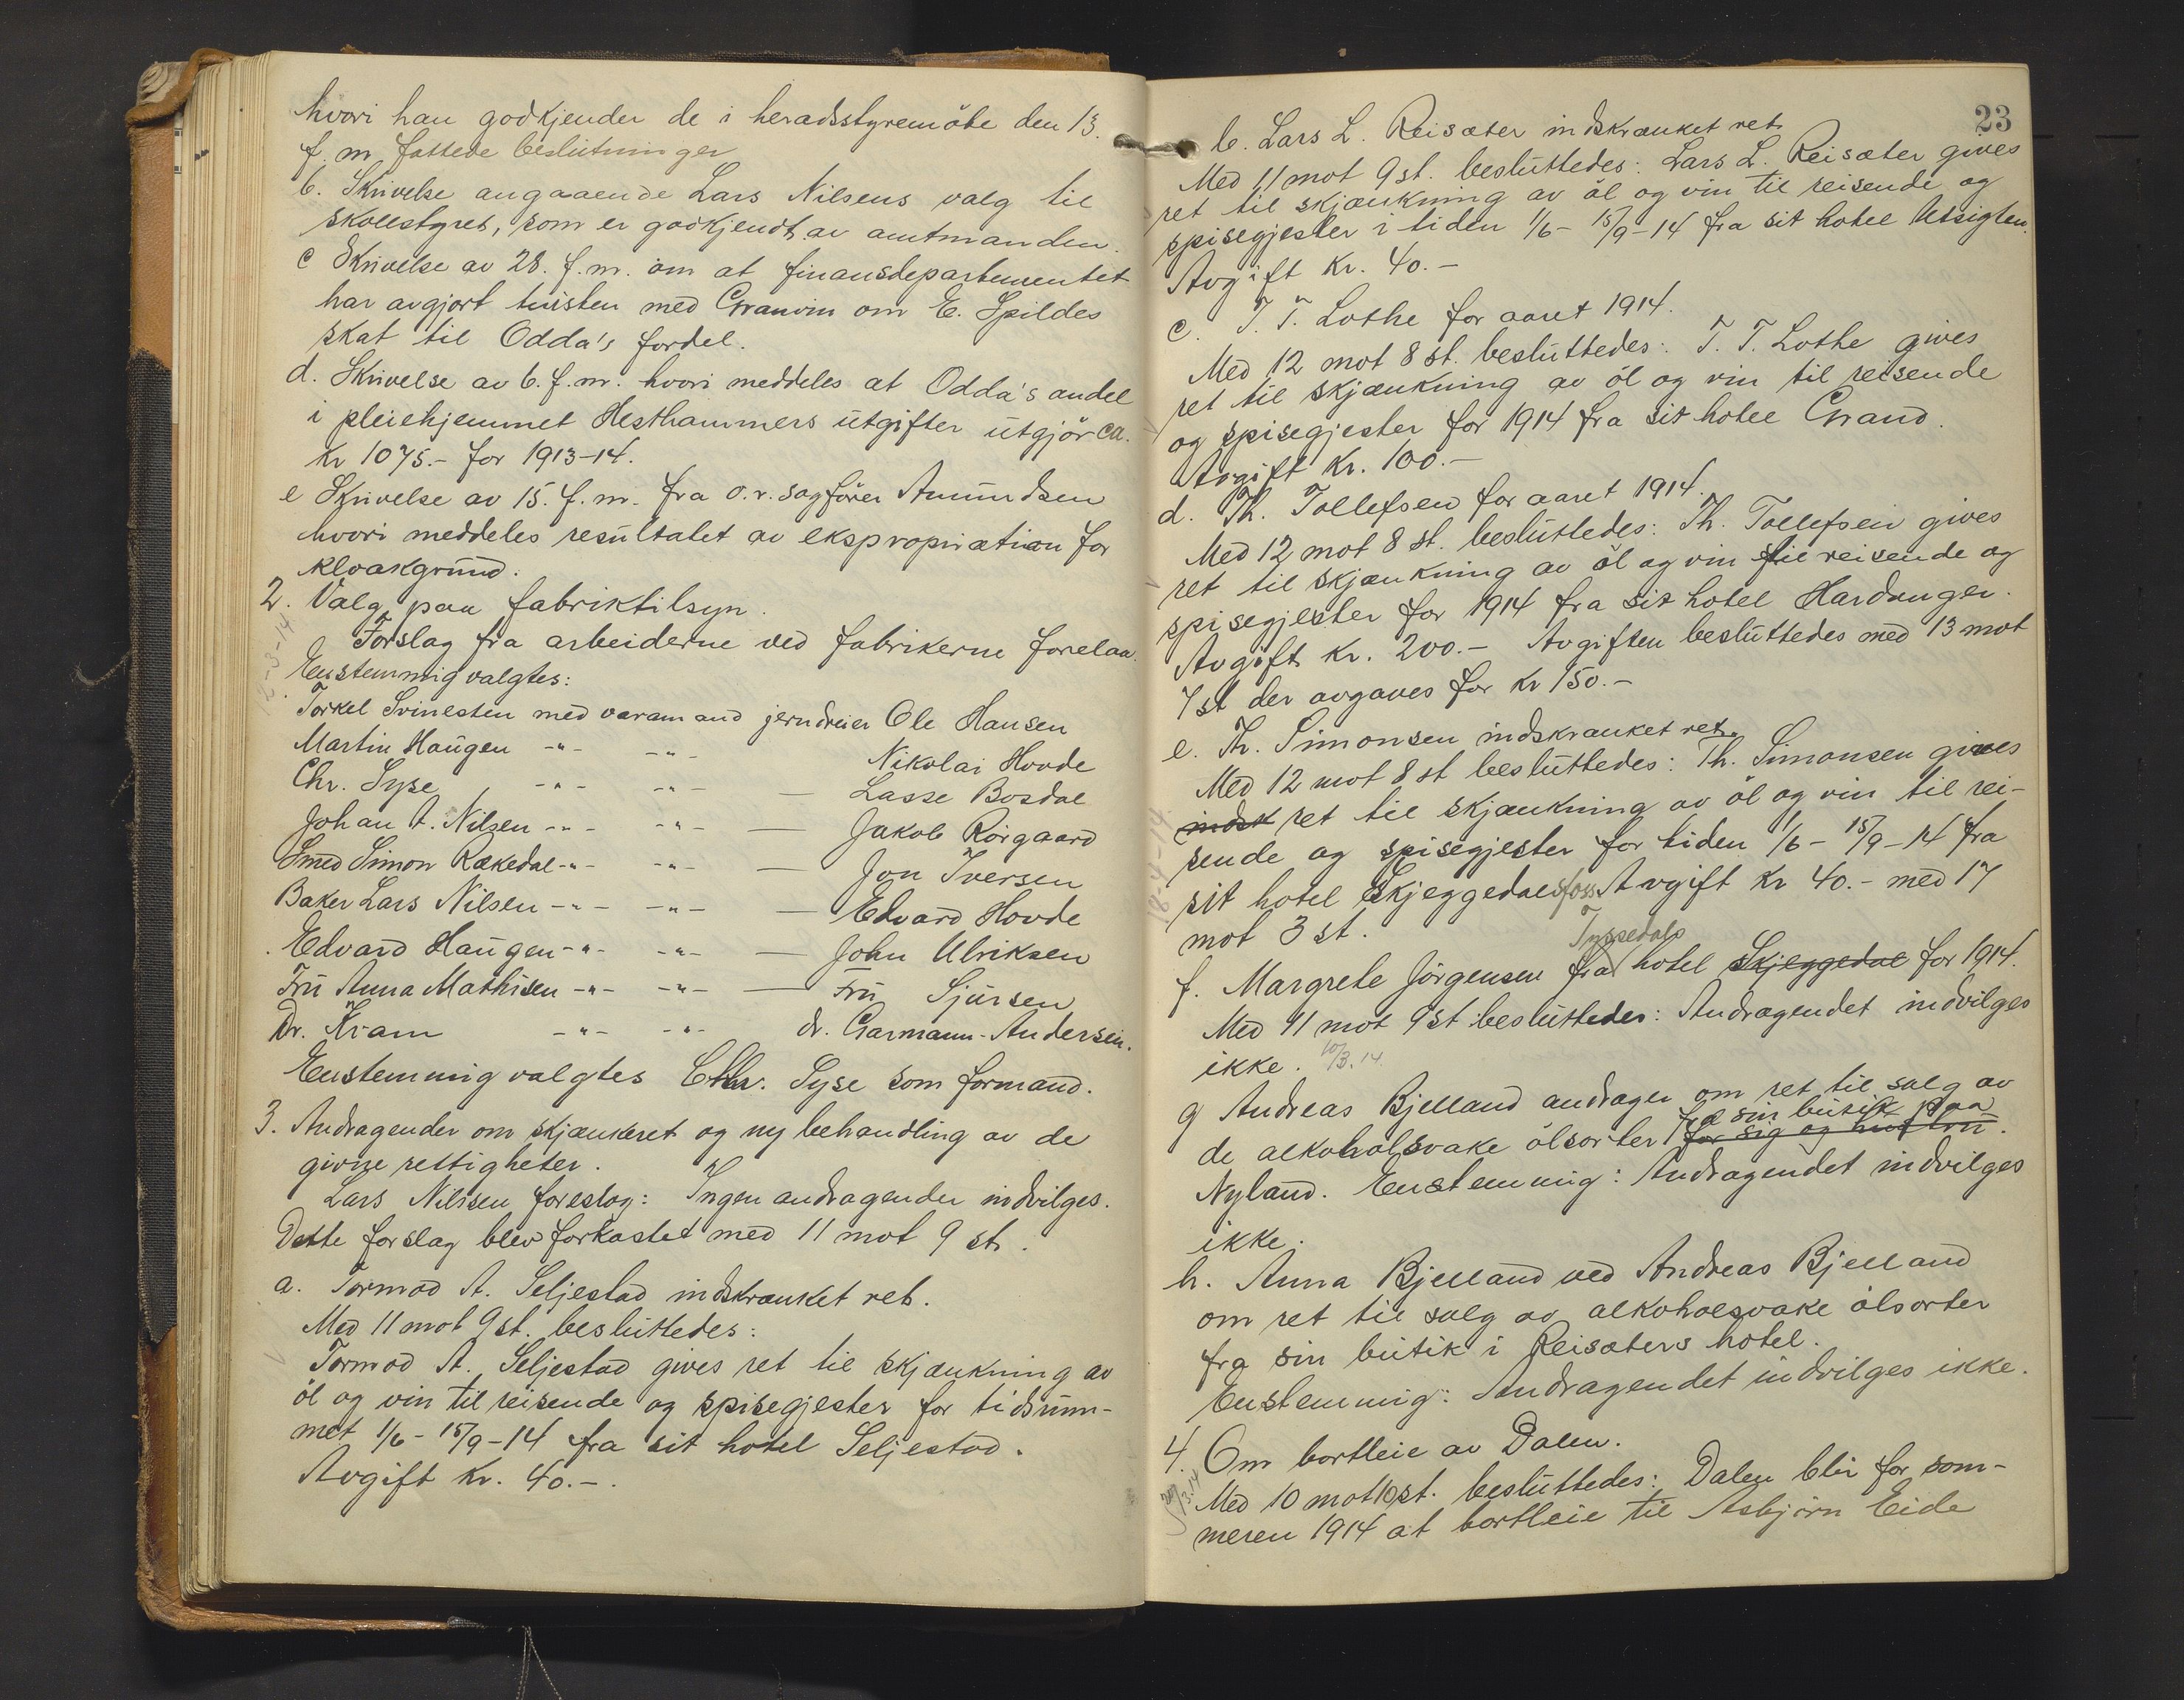 hvori han godkjender de i heradsstyremöte den 13.
f. m. fattede beslutninger
b. Skrivelse angaaende Lars Nilsens valg til
skolestyret, som er godkjendt av amtmanden.
c Skrivelse av 28. f.m. om at finansdepartementet
har avgjort tvisten med Granvin om E. Spildes
skat til Odda's fordel.
d. Skrivelse av 6. f.m. hvori meddeles at Odda's andel
i pleiehjemmet Hesthammers utgifter utgjör ca.
kr 1075.- for 1913-14.
e Skrivelse av 15. f.m. fra o.r.sagförer Amundsen
hvori meddeles resultatet av ekspropriation for
kloakgrund.
2. Valg paa fabriktilsyn.
Forslag fra arbeiderne ved fabrikerne forelaa.
Enstemmig valgtes:
Torkel Svinesten med varamand jerndreier Ole Hansen
Martin Haugen -"- -"- Nikolai Hovde
Chr. Syse -"- -"- — Lasse Bosdal
Johan A. Nilsen -"- -"- — Jakob Rörgaard
Smed Simon Rækedal -"- -"- — Jon Iversen
Baker Lars Nilsen -"- -"- — Edvard Hovde
Edvard Haugen -"- -"- — John Ulriksen
Fru Anna Mathisen -"- -"- — Fru Sjursen
Dr. Kram -"- -"- dr. Garmann-Andersen.
Enstemmig valgtes Chr. Syse som formand.
3. Andragender om skjænkeret og ny behandling av de
givne rettigheter.
Lars Nilsen foreslog: Ingen andragender indvilges.
Dette forslag blev forkastet med 11 mot 9 st.
a. Tormod A. Seljestad indskrænket ret.
Med 11 mot 9 st. besluttedes:
Tormod A. Seljestad gives ret til skjænkning av
öl og vin til reisende og spisegjester for tidsrum-
met 1/6 - 15/9 - 14 fra sit hotel Seljestad.
Avgift kr. 40.-.
23
b. Lars L. Reisæter indskrænket ret.
Med 11 mot 9 st. besluttedes: Lars L. Reisæter gives
ret til skjænkning av öl og vin til reisende og
spisegjester i tiden 1/6 - 15/9 - 14 fra sit hotel Utsigten.
Avgift kr. 40.-
c. T. T. Lothe for aaret 1914.
Med 12 mot 8 st. besluttedes: T. T. Lothe gives
ret til skjænkning av öl og vin til reisende
og spisegjester for 1914 fra sit hotel Grand.
Avgift kr. 100.-
d. Th. Tollefsen for aaret 1914.
Med 12 mot 8 st. besluttedes: Th. Tollefsen gives
ret til skjænkning av öl og vin til reisende og
spisegjester for 1914 fra sit hotel Hardanger.
Avgift kr. 200.- Avgiften besluttedes med 13 mot
7 st der avgaves for kr 150.-
e. Th. Simonsen indskrænket ret.
Med 12 mot 8 st besluttedes: Th. Simonsen gives
indsk ret til skjænkning av öl og vin til rei-
sende og spisegjester for tiden 1/6 - 15/9 - 14 fra
sit hotel Skjeggedalsfoss Avgift kr 40.- med 17
mot 3 st.
Tyssedals
f. Margrete Jörgensen fra hotel Skjeggedal for 1914.
Med 11 mot 9 st besluttedes: Andragendet indvilges
ikke. 10/3.14
g Andreas Bjelland andrager om ret til salg av
fra sin butik paa
de alkoholsvake ölsorter for sig og hustru.
Nyland. Enstemmig: Andragendet indvilges
ikke.
h. Anna Bjelland ved Andreas Bjelland
om ret til salg av alkoholsvake ölsorter
fra sin butik i Reisæters hotel.
Enstemmig: Andragendet indvilges ikke.
4. Om bortleie av Dalen.
Med 10 mot 10 st. besluttedes: Dalen blir for som-
meren 1914 at bortleie til Asbjörn Eide